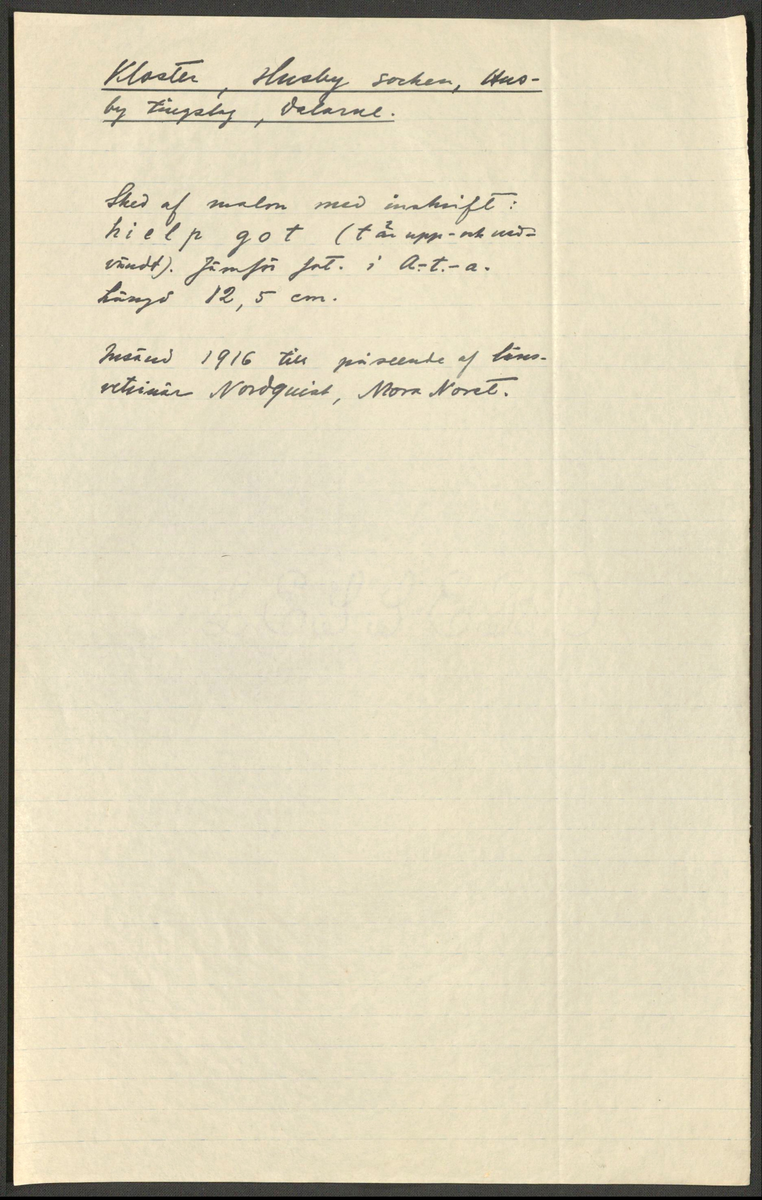 Kloster, Husby socken, Hus-
by tingslag, Dalarne.
Sked af malm med inskrift:
hielp got (t är upp- och ned-
vändt). Jämför fot. i A.-t.-a.
Längd 12,5 cm.
Insänd 1916 till påseende af läns-
veterinär Nordquist, Mora Norst.